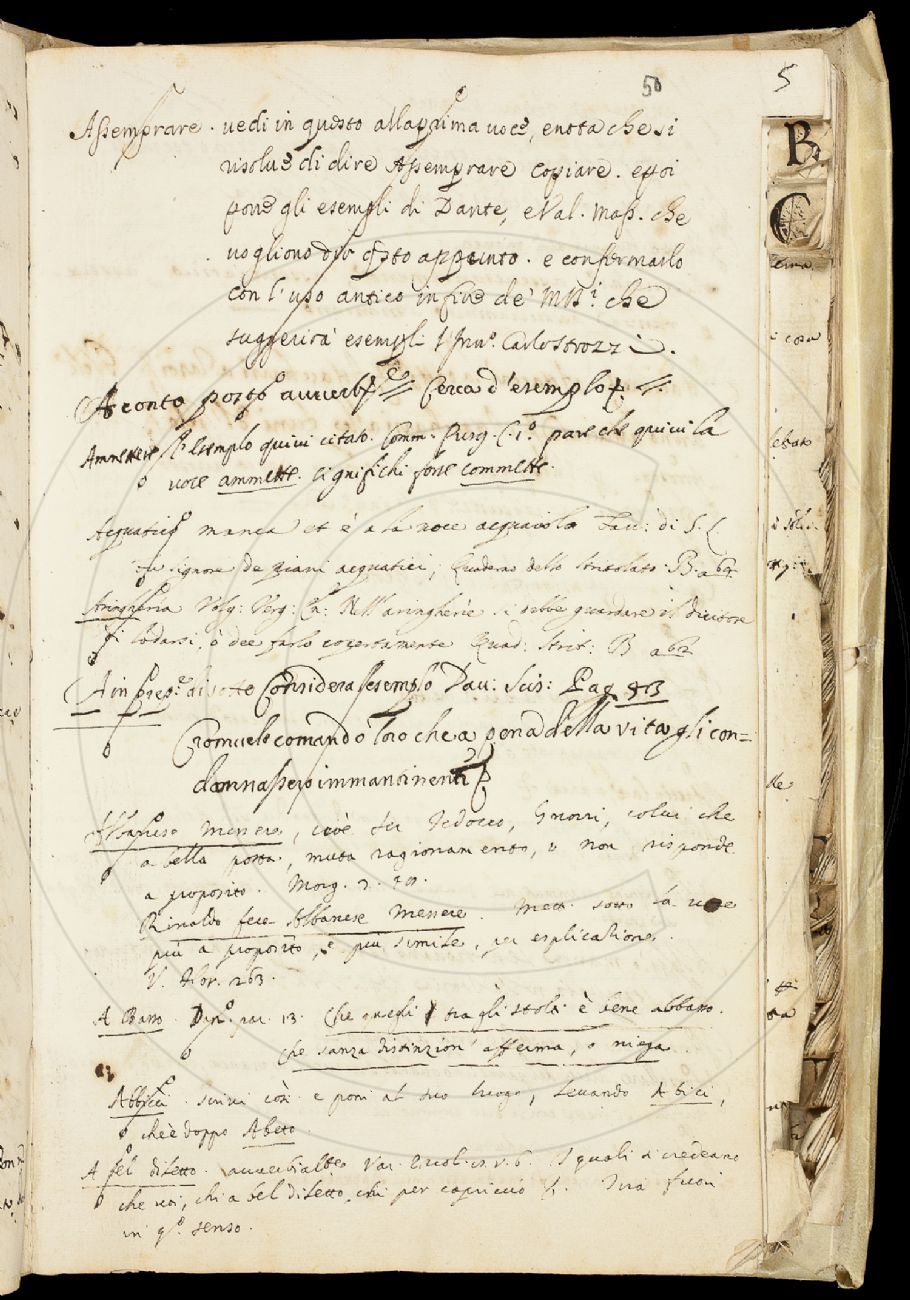 50
5
Assemprare. vedi in questo alla prima voce, e nota che si
risolue di dire Assemprare copiare. e poi
pone gli esempli di Dante, e Val. Mass. che
vogliono dir questo appunto. e confermarlo
con l'uso antico in fine de' MSS.i che
suggerirà esempli l'Inn.o Carlo Strozzi.
A conto posto avverb. Cerca d'esemplo
Ammettere L'esemplo quivi citato. Comm. Purg. C. 1.o pare che quivi la
voce ammette. significhi forse commette.
Acquatico manca et è a la voce acquaiola Fav: di S. C.
signore de giani acquatici, Quaderno dello Stritolato. B a 62
Aringheria Volg: Verg: En: Nell'aringherie si debbe guardare il dicitore
di lodarsi, o dee farlo copertamente Quad: Strit: B a 62
A in prep.e di sotto Considera l'esemplo Dav: Scis: Pag 83
Cromuelo comandò loro che a pena della vita gli con=
dannassero immantinenti
Albanese Messere, cioè fa Nedocco, Gnorri, colui che
a bella posta, muta ragionamento, o non risponde
a proposito. Morg. 3.
Rinaldo fece Albanese Messere. Mett. sotto la voce
più a proposito, e più simile, per esplicazione
V. Flor. 263.
A Basso. Dan. par. 13. Che quegli tra gli stolti è bene abbasso.
Che sanza distinzion' afferma, o niega.
Abbicci. scrivi così e poni al suo luogo, levando Abici,
che è doppo Abeto.
A bel diletto. avverbialte. Var. Ercol. I quali si credeano
che voi, chi a bel diletto, chi per capriccio
in q.o senso.
B
C